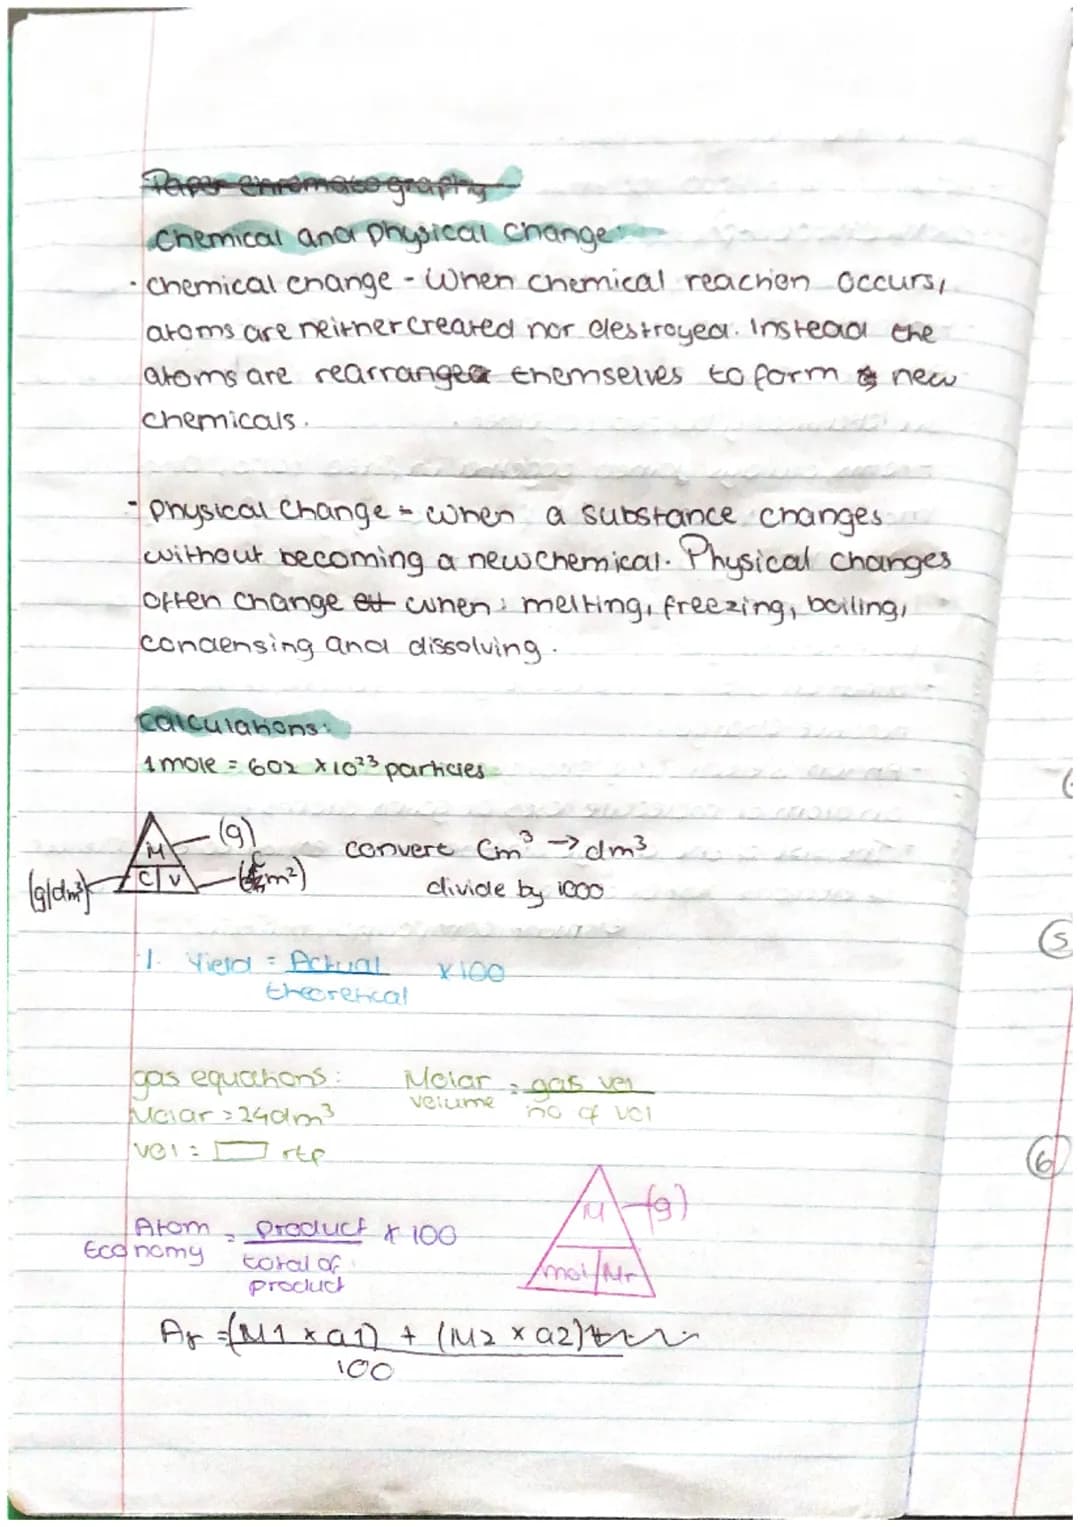 Paper chromatography
Chemical and physical change:
· chemical change - When chemical reaction occurs,
atoms are neither created nor destroyed. Instead the
atoms are rearranged themselves to form new
chemicals.
- Physical Change - when a substance changes
without becoming a new chemical. Physical changes
often change when: melting, freezing, boiling,
condensing and dissolving.
Calculations:
1 mole = 602 x 10²³ particles
M (g)
(g/dm³) C V m²)
convert Cm³ → dm³
divide by 1000
1. Yield = Actual x 100
theoretical
gas equations: Molar = gas vol
Molar = 24dm³ volume no of vol
vol = rtp
Atom = product x 100
Economy total of
product
M (g)
mol Mr
Ar = (M1 x a1) + (M2 x a2)
100
5
6